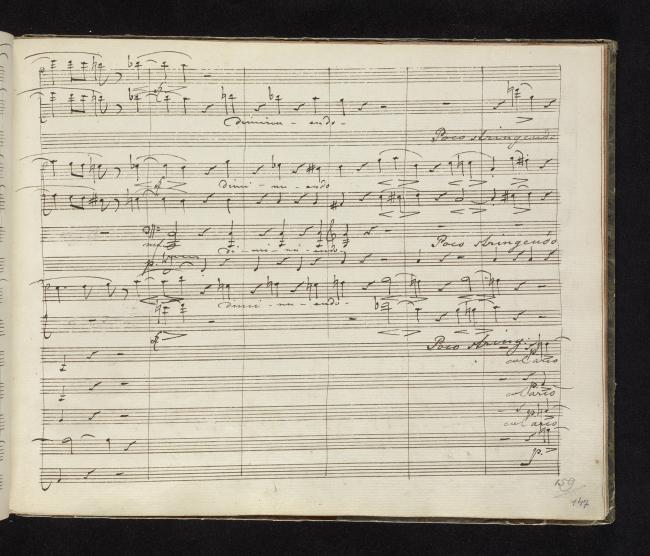 sf
diminu - endo -
Poco stringendo
sf
dimi - nu - endo
mf
di - mi - nu - endo
Poco stringendo
p.
dimi - nu - endo -
sf
Poco string:
col'arco
p.
col'arco
p.
col'arco
p.
159
147